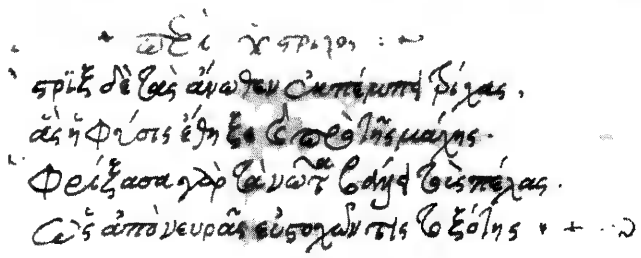 περὶ ὕστριχος :~
στρὶξ δὲ τὰς ἄνωθεν ἐκπέμπει τρίχας,
ἃς ἡ φύσις ἔθηξε τὸ πρὸ τῆς μάχης.
Φρίξασα γὰρ τὰ νῶτα τοὺς πέλας.
Ὡς ἀπὸ νευρᾶς εὐστοχῶν τις τοξότης